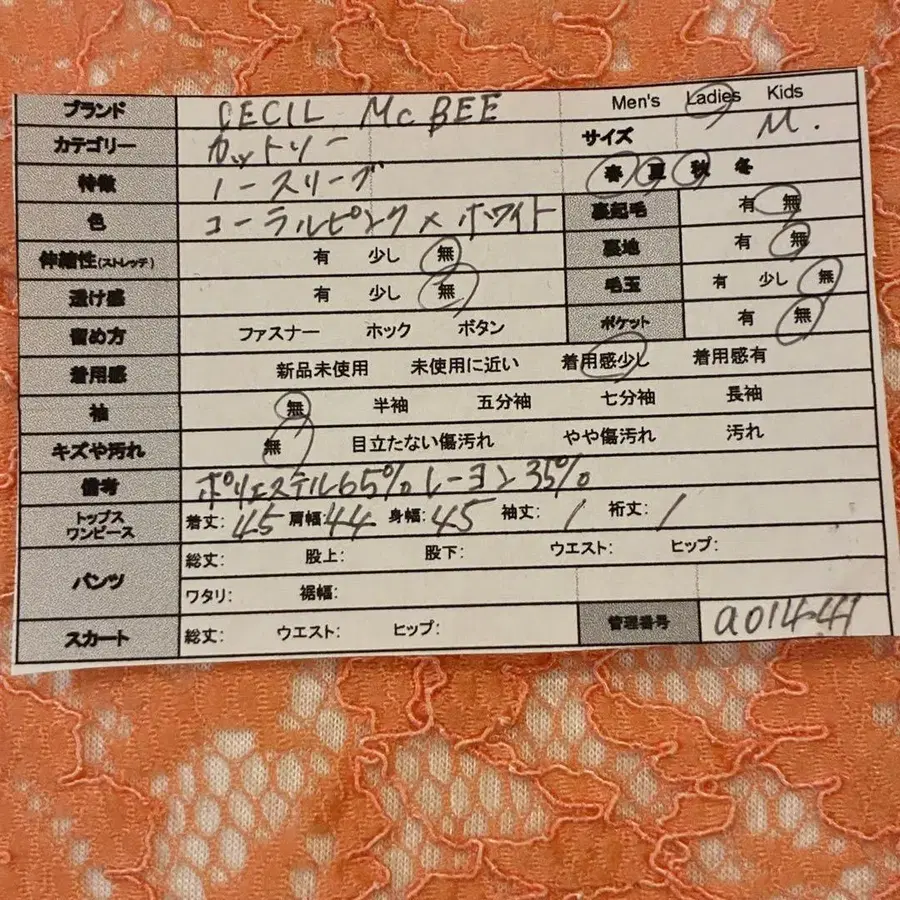 ブランド CECIL McBEE Men's Ladies Kids
カテゴリー カットソー サイズ M.
特徴 ノースリーブ 春 夏 秋 冬
色 コーラルピンク×ホワイト 裏起毛 有 無
伸縮性(ストレッチ) 有 少し 無 裏地 有 無
透け感 有 少し 無 毛玉 有 少し 無
留め方 ファスナー ホック ボタン ポケット 有 無
着用感 新品未使用 未使用に近い 着用感少し 着用感有
袖 無 半袖 五分袖 七分袖 長袖
キズや汚れ 無 目立たない傷汚れ やや傷汚れ 汚れ
備考 ポリエステル65% レーヨン35%
トップス
ワンピース 着丈: 45 肩幅: 44 身幅: 45 袖丈: / 裄丈: /
パンツ 総丈: 股上: 股下: ウエスト: ヒップ:
ワタリ: 裾幅:
スカート 総丈: ウエスト: ヒップ: 管理番号